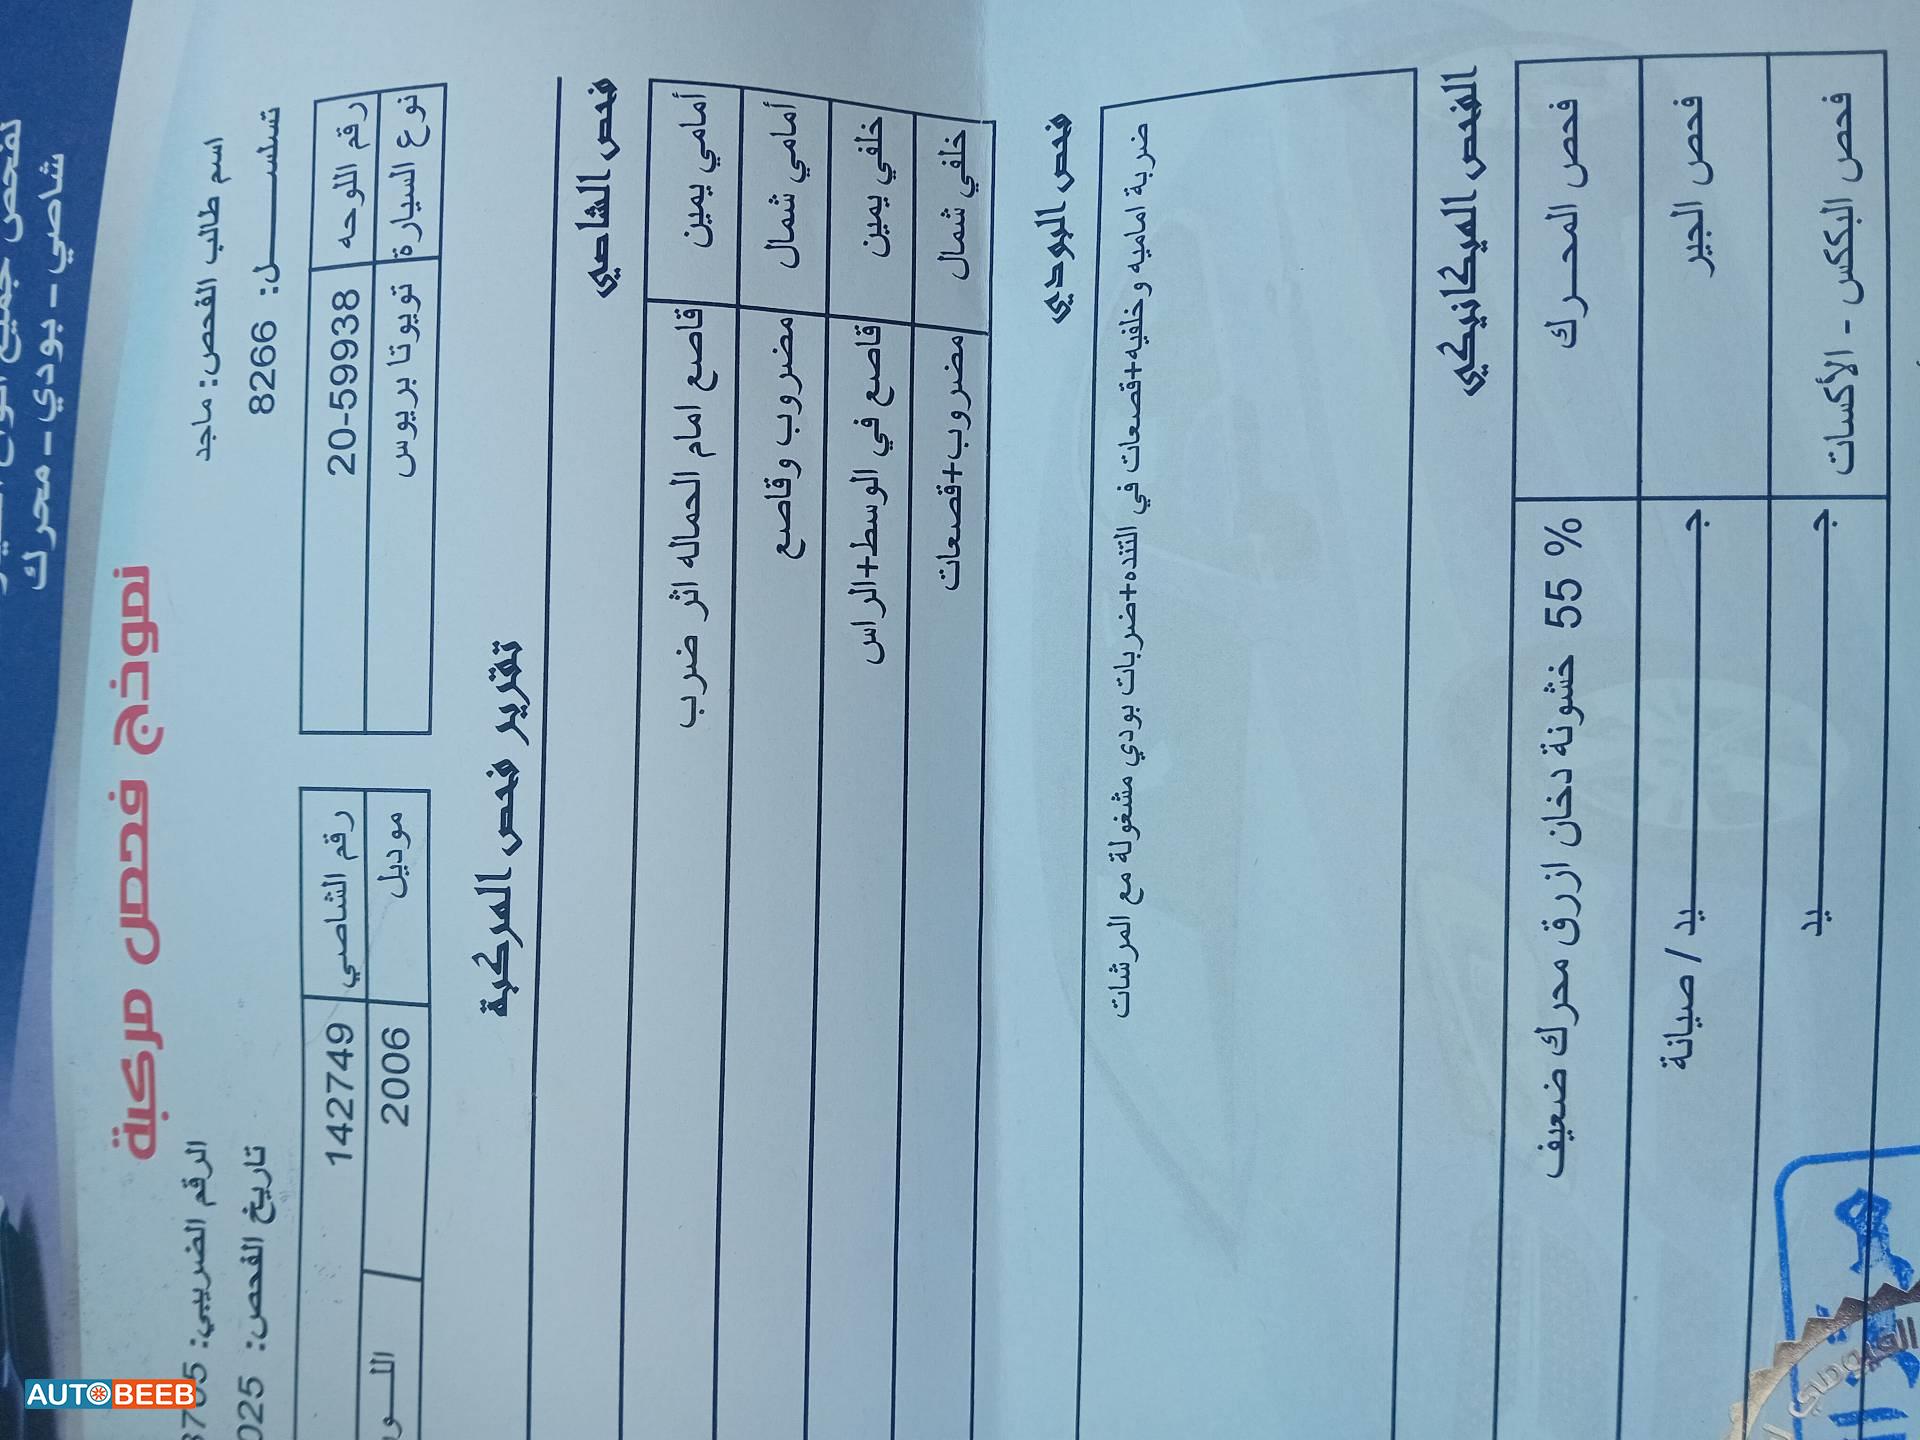 لفحص جميع
شاصي - بودي - محرك
نموذج فحص مركبة
اسم طالب الفحص: ماجد
الرقم الضريبي:
تسلســـــل: 8266
تاريخ الفحص: 025
رقم اللوحه 20-59938
رقم الشاصي 142749
نوع السيارة تويوتا بريوس
موديل 2006
تقرير فحص المركبة
فحص الشاصي
أمامي يمين قاصع امام الحماله اثر ضرب
أمامي شمال مضروب وقاصع
خلفي يمين قاصع في الوسط+الراس
خلفي شمال مضروب+قصعات
فحص البودي
ضربة اماميه وخلفيه+قصعات في التنده+ضربات بودي مشغولة مع المرشات
الفحص الميكانيكي
فحص المحــرك 55 % خشونة دخان ازرق محرك ضعيف
فحص الجير جـــــــــــــيد / صيانة
فحص البككس - الأكسات جـــــــــــــيد
AUTOBEEB